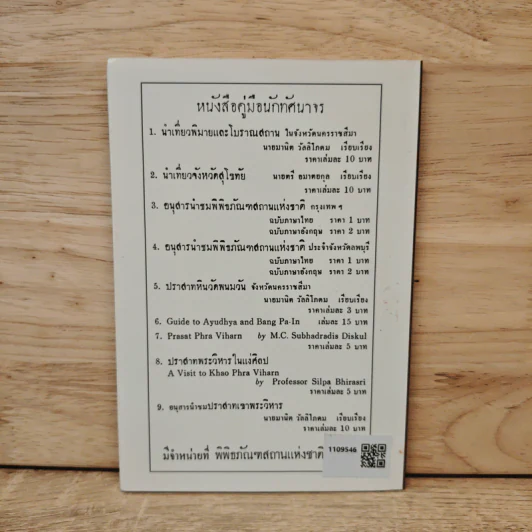 หนังสือคู่มือนักทัศนาจร
1. นำเที่ยวพิมายและโบราณสถาน ในจังหวัดนครราชสีมา
นายมานิต วัลลิโภดม เรียบเรียง
ราคาเล่มละ 10 บาท
2. นำเที่ยวจังหวัดสุโขทัย นายตรี อมาตยกุล เรียบเรียง
ราคาเล่มละ 10 บาท
3. อนุสารนำชมพิพิธภัณฑสถานแห่งชาติ กรุงเทพ ฯ
ฉบับภาษาไทย ราคา 1 บาท
ฉบับภาษาอังกฤษ ราคา 2 บาท
4. อนุสารนำชมพิพิธภัณฑสถานแห่งชาติ ประจำจังหวัดลพบุรี
ฉบับภาษาไทย ราคา 1 บาท
ฉบับภาษาอังกฤษ ราคา 2 บาท
5. ปราสาทหินวัดพนมวัน จังหวัดนครราชสีมา
นายมานิต วัลลิโภดม เรียบเรียง
ราคาเล่มละ 3 บาท
6. Guide to Ayudhya and Bang Pa-In เล่มละ 15 บาท
7. Prasat Phra Viharn by M.C. Subhadradis Diskul
ราคาเล่มละ 5 บาท
8. ปราสาทพระวิหารในแง่ศิลป
A Visit to Khao Phra Viharn
by Professor Silpa Bhirasri
ราคาเล่มละ 5 บาท
9. อนุสารนำชมปราสาทเขาพระวิหาร
นายมานิต วัลลิโภดม เรียบเรียง
ราคาเล่มละ 10 บาท
มีจำหน่ายที่ พิพิธภัณฑสถานแห่งชาติ
1109546